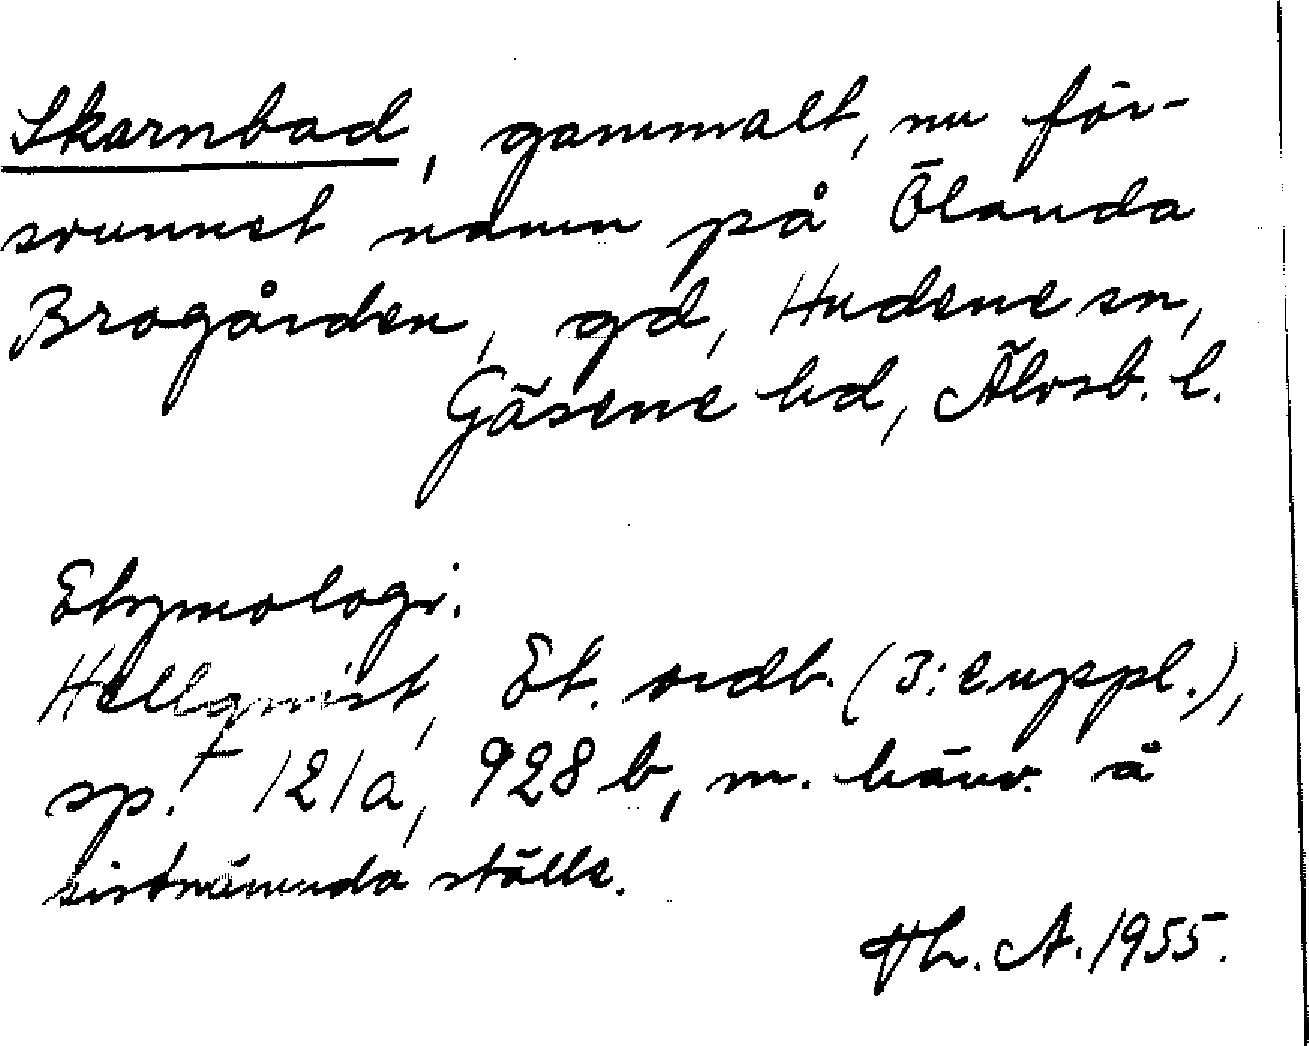 Skarnbad, gammalt, nu för-
svunnet namn på Ölanda
Brogården, gd, Hudene sn,
Gäsene hd, Älvsb. l.
Etymologi.
Hellqvist, Et. ordb. (3:e uppl.),
sp. 121a, 928 b, m. hänv. å
sistnämnda ställe.
Th. A. 1955.